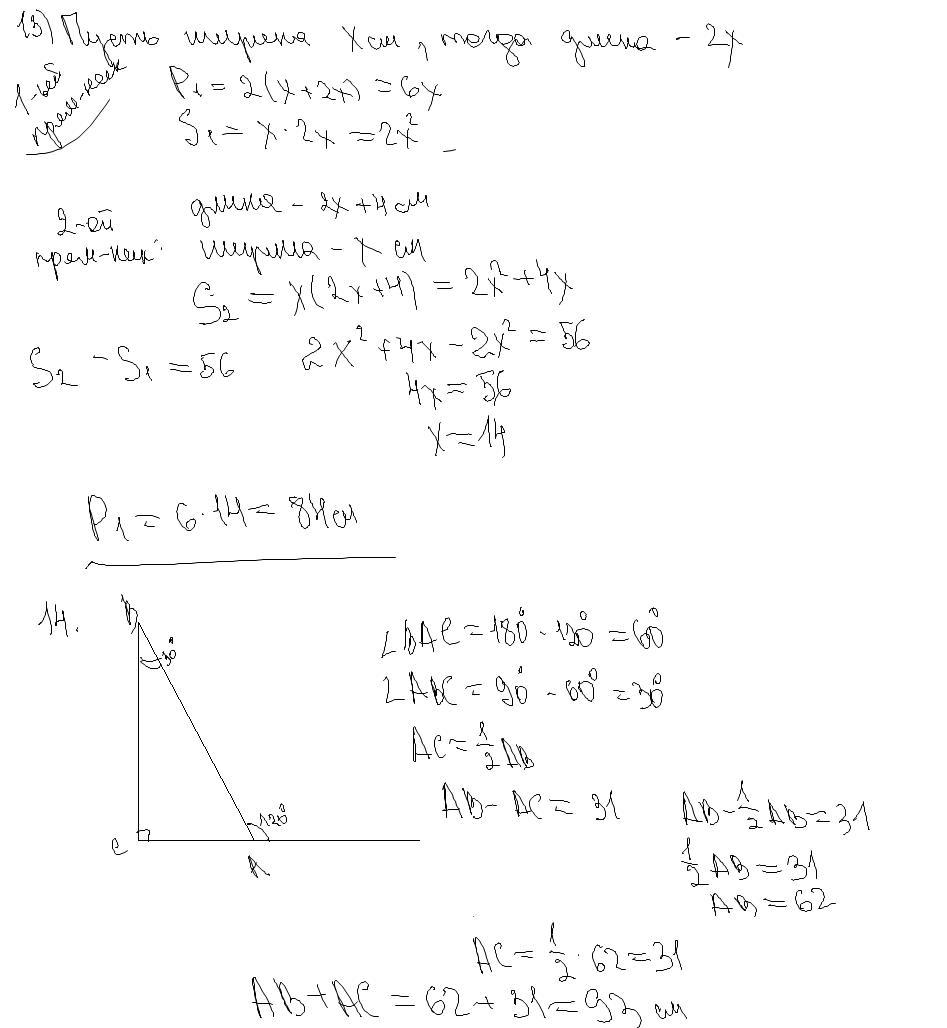 13) Пусть ширина x см, тогда длина - 2x
1-ый прям-ник
P₁ = 2(x+2x) = 6x
S₁ = x · 2x = 2x²
2-ой прям-ник:
длина - 2x + 4 см
ширина - x см
S₂ = x(2x+4) = 2x² + 4x
S₂ - S₁ = 56
2x² + 4x - 2x² = 56
4x = 56
x = 14
P₁ = 6 · 14 = 84 см
14.
B
30°
120°
C
A
∠BAC = 180° - 120° = 60°
∠ABC = 90° - 60° = 30°
AC = 1/2 AB
AB - AC = 31
AB - 1/2 AB = 31
1/2 AB = 31
AB = 62
AC = 1/2 · 62 = 31
AB + AC = 62 + 31 = 93 см